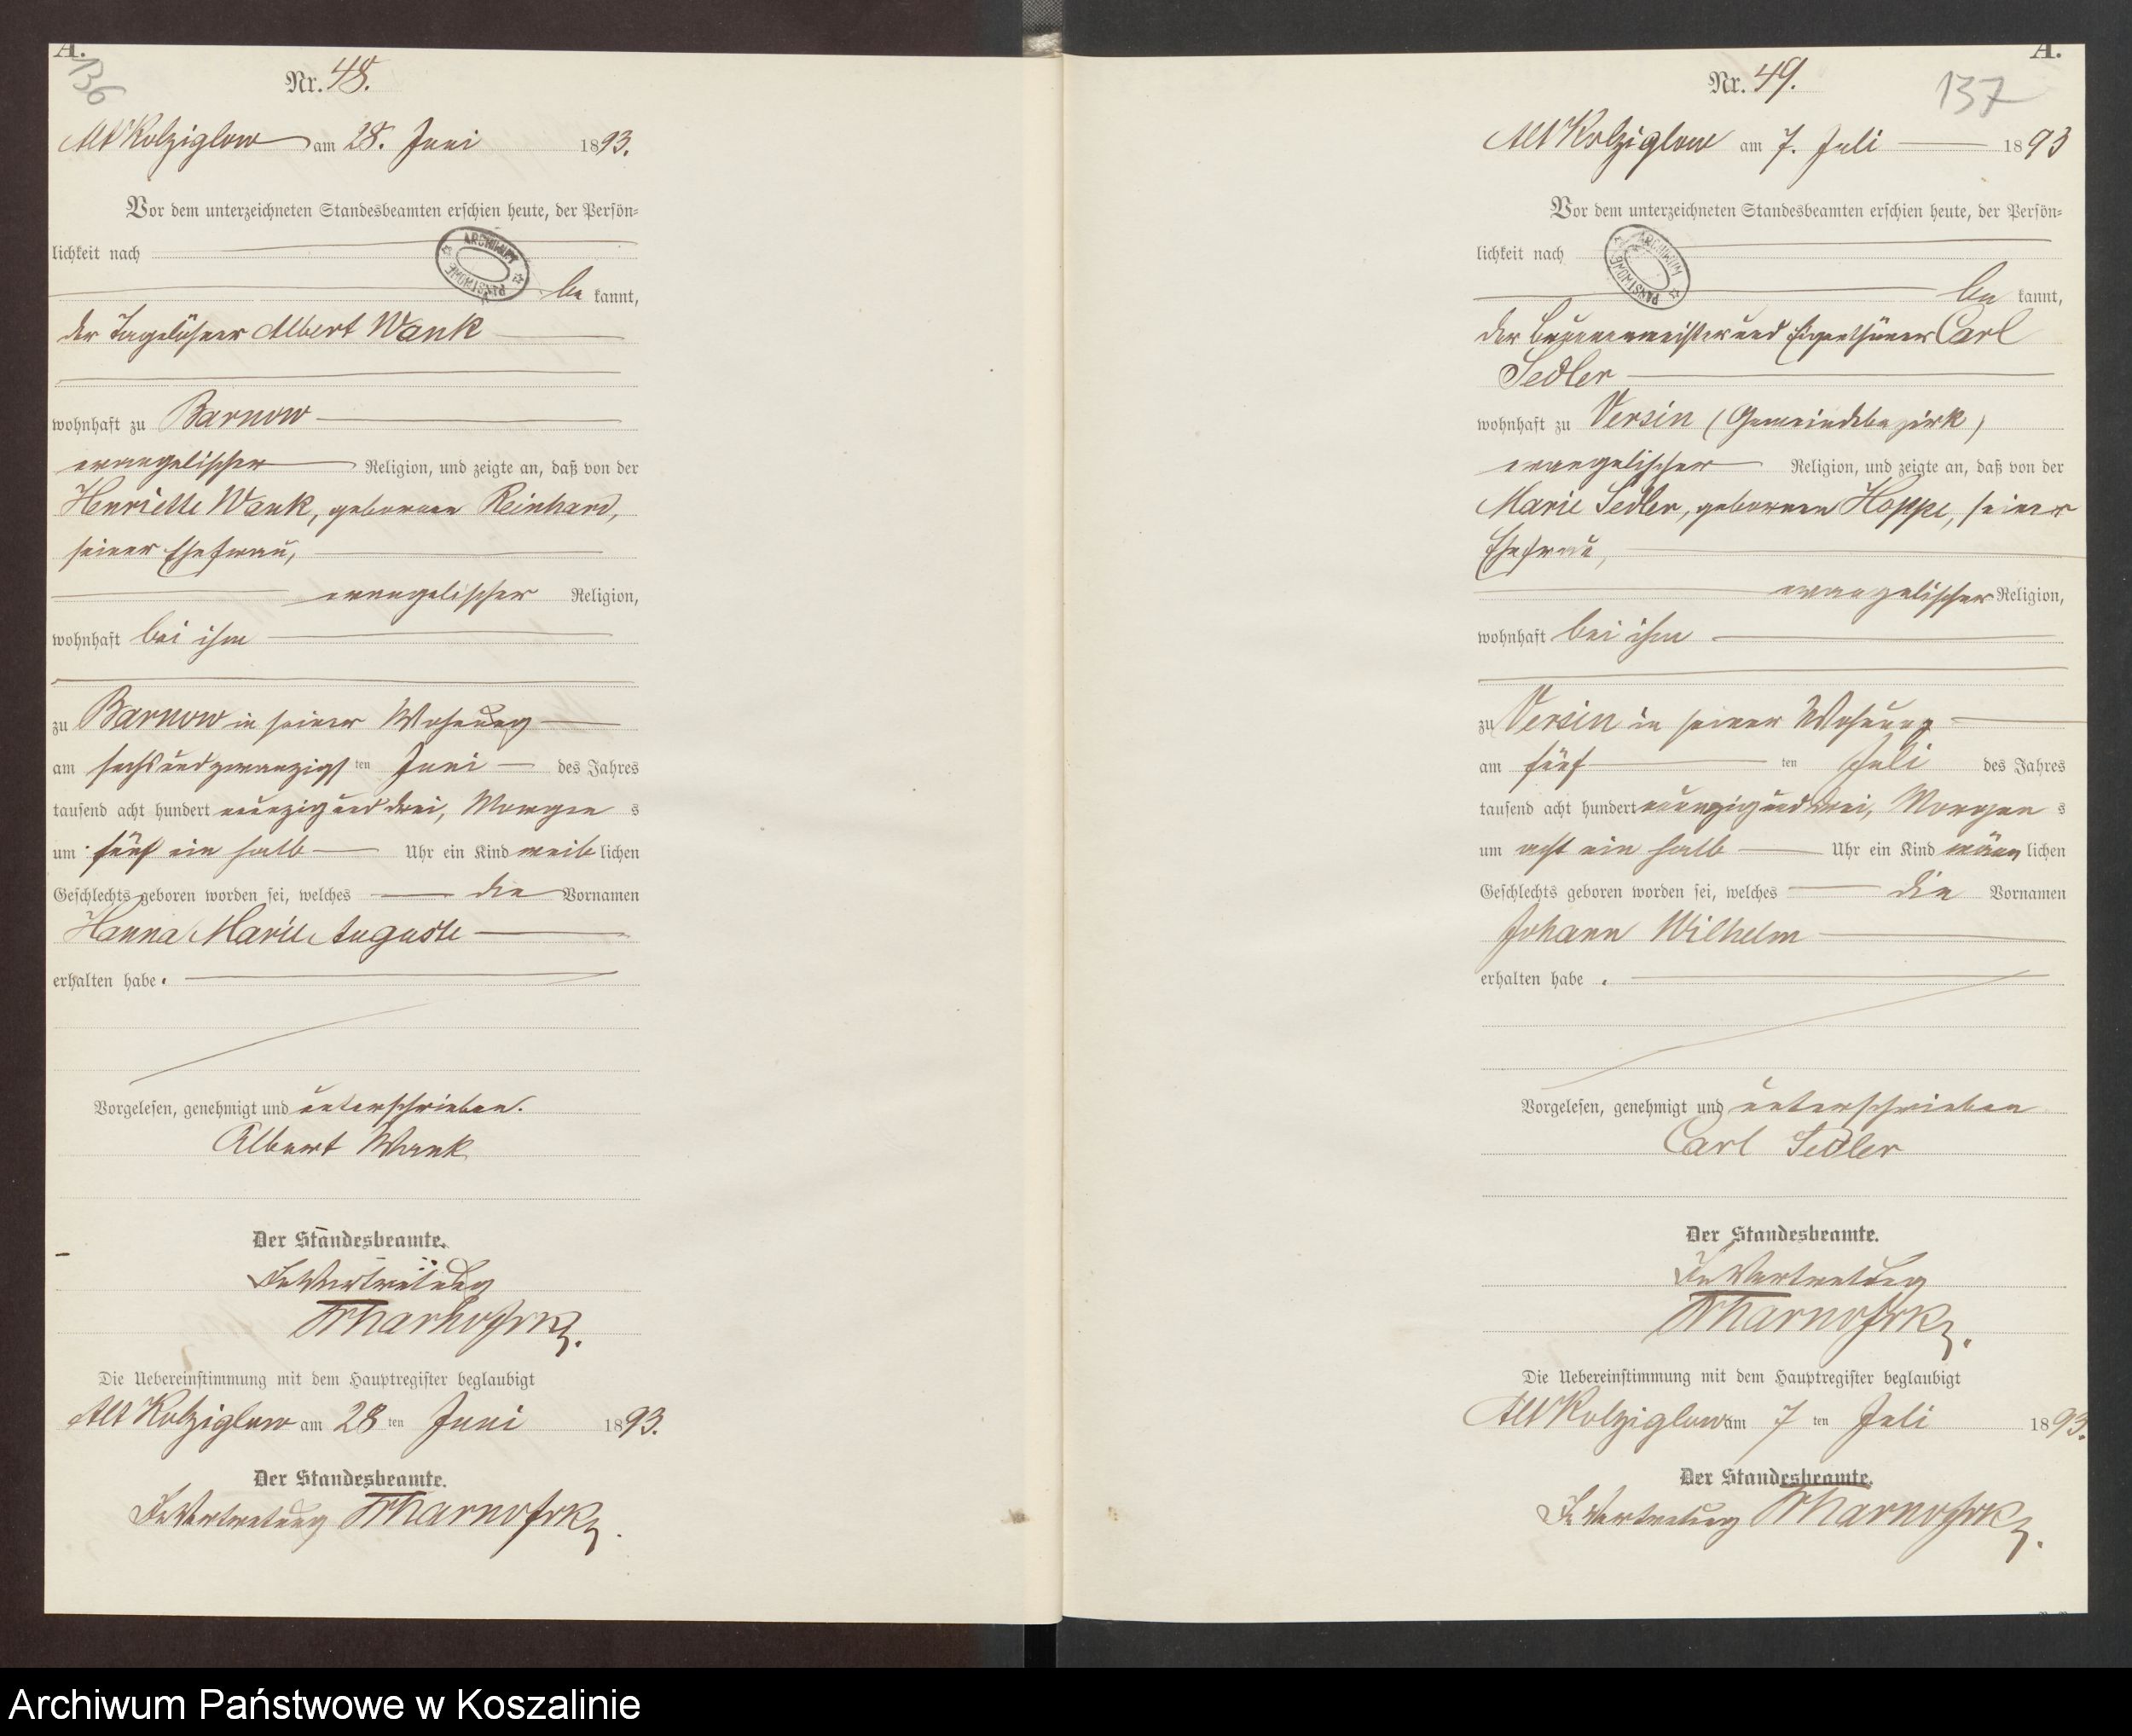 A.
136
Nr. 48.
Alt Kolziglow am 28. Juni 1893.
Vor dem unterzeichneten Standesbeamten erschien heute, der Persön-
lichkeit nach
be kannt,
der Tagelöhner Albert Wank
wohnhaft zu Barnow
evangelischer Religion, und zeigte an, daß von der
Henriette Wank, geborenen Reinhard,
seiner Ehefrau,
evangelischer Religion,
wohnhaft bei ihm
zu Barnow in seiner Wohnung
am sechsundzwanzigs ten Juni des Jahres
tausend acht hundert neunzig und drei, Morgen s
um fünf ein halb Uhr ein Kind weib lichen
Geschlechts geboren worden sei, welches die Vornamen
Hanna Marie Auguste
erhalten habe.
Vorgelesen, genehmigt und unterschrieben.
Albert Wank
Der Standesbeamte.
In Vertretung
Die Uebereinstimmung mit dem Hauptregister beglaubigt
Alt Kolziglow am 28 ten Juni 1893.
Der Standesbeamte.
In Vertretung
A.
137
Nr. 49.
Alt Kolziglow am 7. Juli 1893
Vor dem unterzeichneten Standesbeamten erschien heute, der Persön-
lichkeit nach
ARCHIWUM PAŃSTWOWE
be kannt,
der Brunnenmeister und Eigenthümer Carl
Sedler
wohnhaft zu Versin (Gemeindebezirk)
evangelischer Religion, und zeigte an, daß von der
Marie Sedler, geborenen Hoppe, seiner
Ehefrau,
evangelischer Religion,
wohnhaft bei ihm
zu Versin in seiner Wohnung
am fünf ten Juli des Jahres
tausend acht hundert neunzig und drei, Morgen s
um acht ein halb Uhr ein Kind männ lichen
Geschlechts geboren worden sei, welches die Vornamen
Johann Wilhelm
erhalten habe.
Vorgelesen, genehmigt und unterschrieben
Carl Sedler
Der Standesbeamte.
In Vertretung
Die Uebereinstimmung mit dem Hauptregister beglaubigt
Alt Kolziglow am 7 ten Juli 1893.
Der Standesbeamte.
In Vertretung
Archiwum Państwowe w Koszalinie